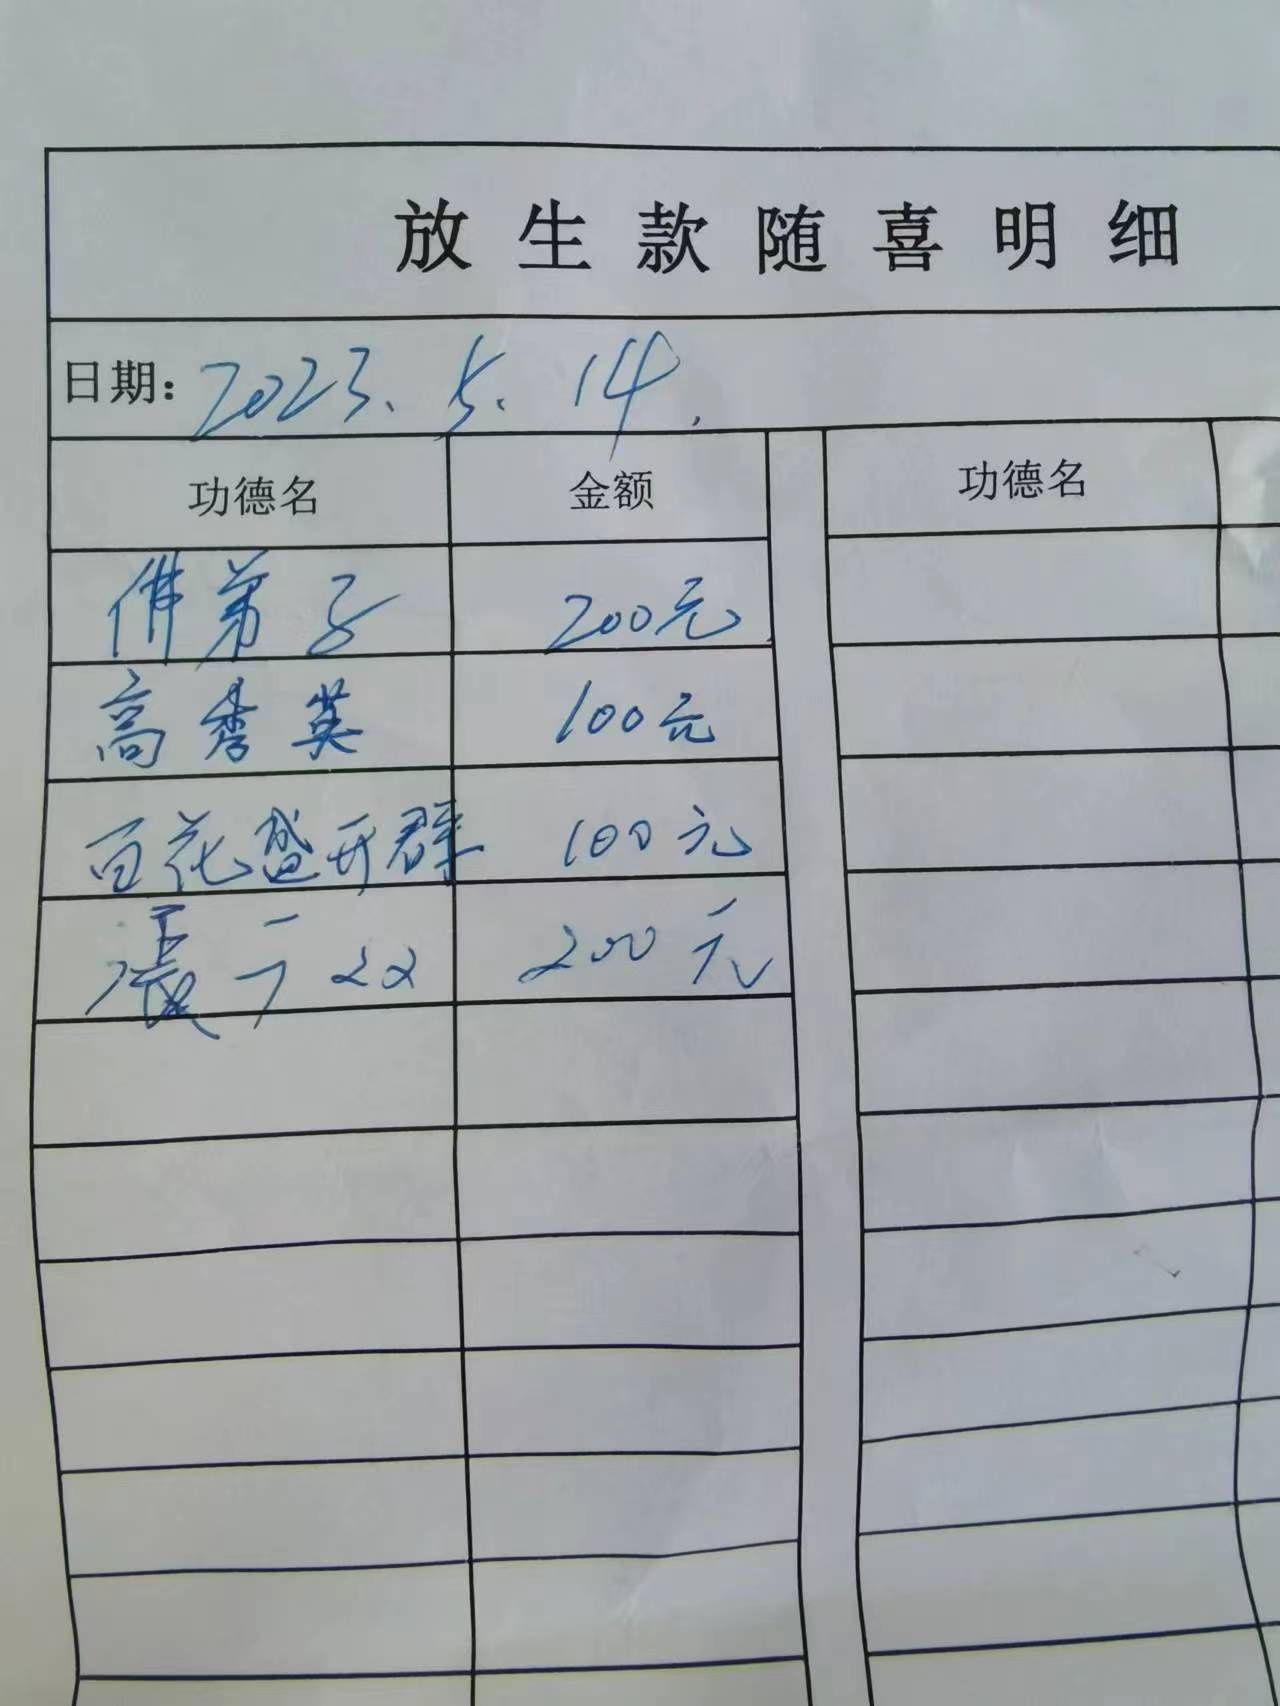 放生款随喜明细
日期：2023.5.14.
功德名 金额 功德名
佛弟子 200元
高秀英 100元
百花盛开群 100元
張 200元